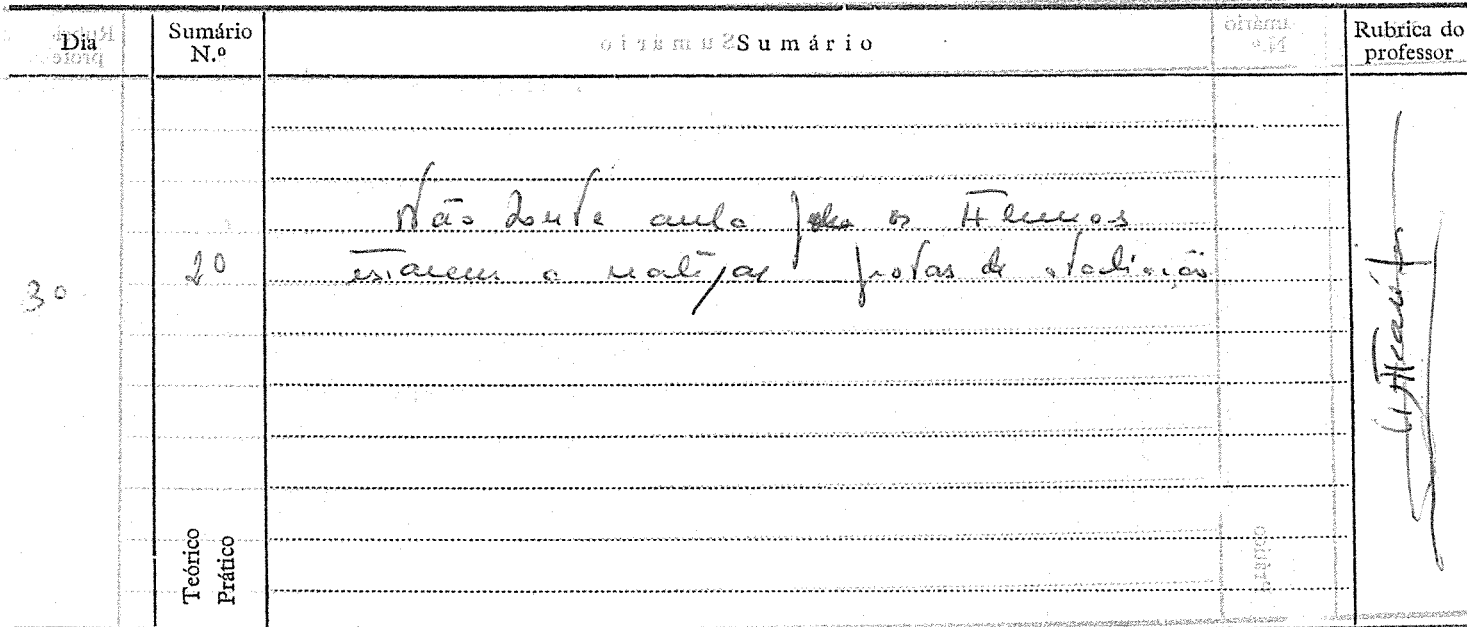 Dia
Sumário N.º
Sumário
Rubrica do professor
Não houve aula os Alunos
30
20
estarem a realizar provas de avaliação
Teórico
Prático